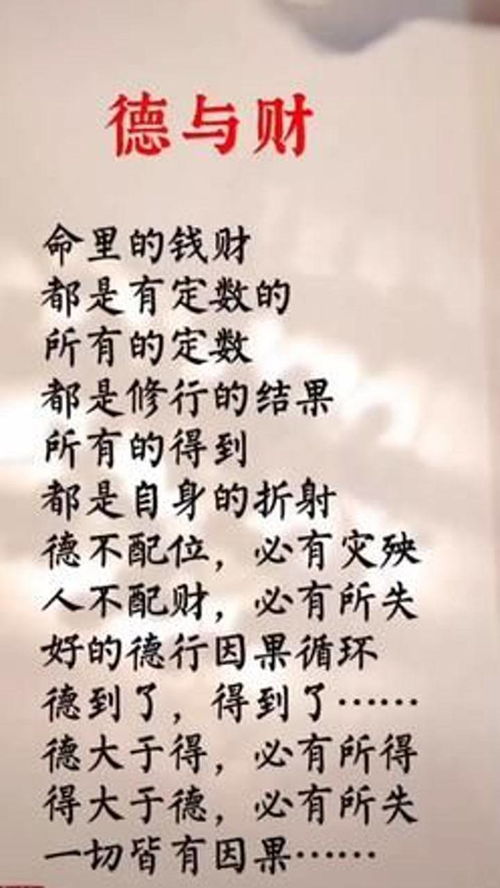 德与财
命里的钱财
都是有定数的
所有的定数
都是修行的结果
所有的得到
都是自身的折射
德不配位，必有灾殃
人不配财，必有所失
好的德行因果循环
德到了，得到了……
德大于得，必有所得
得大于德，必有所失
一切皆有因果……